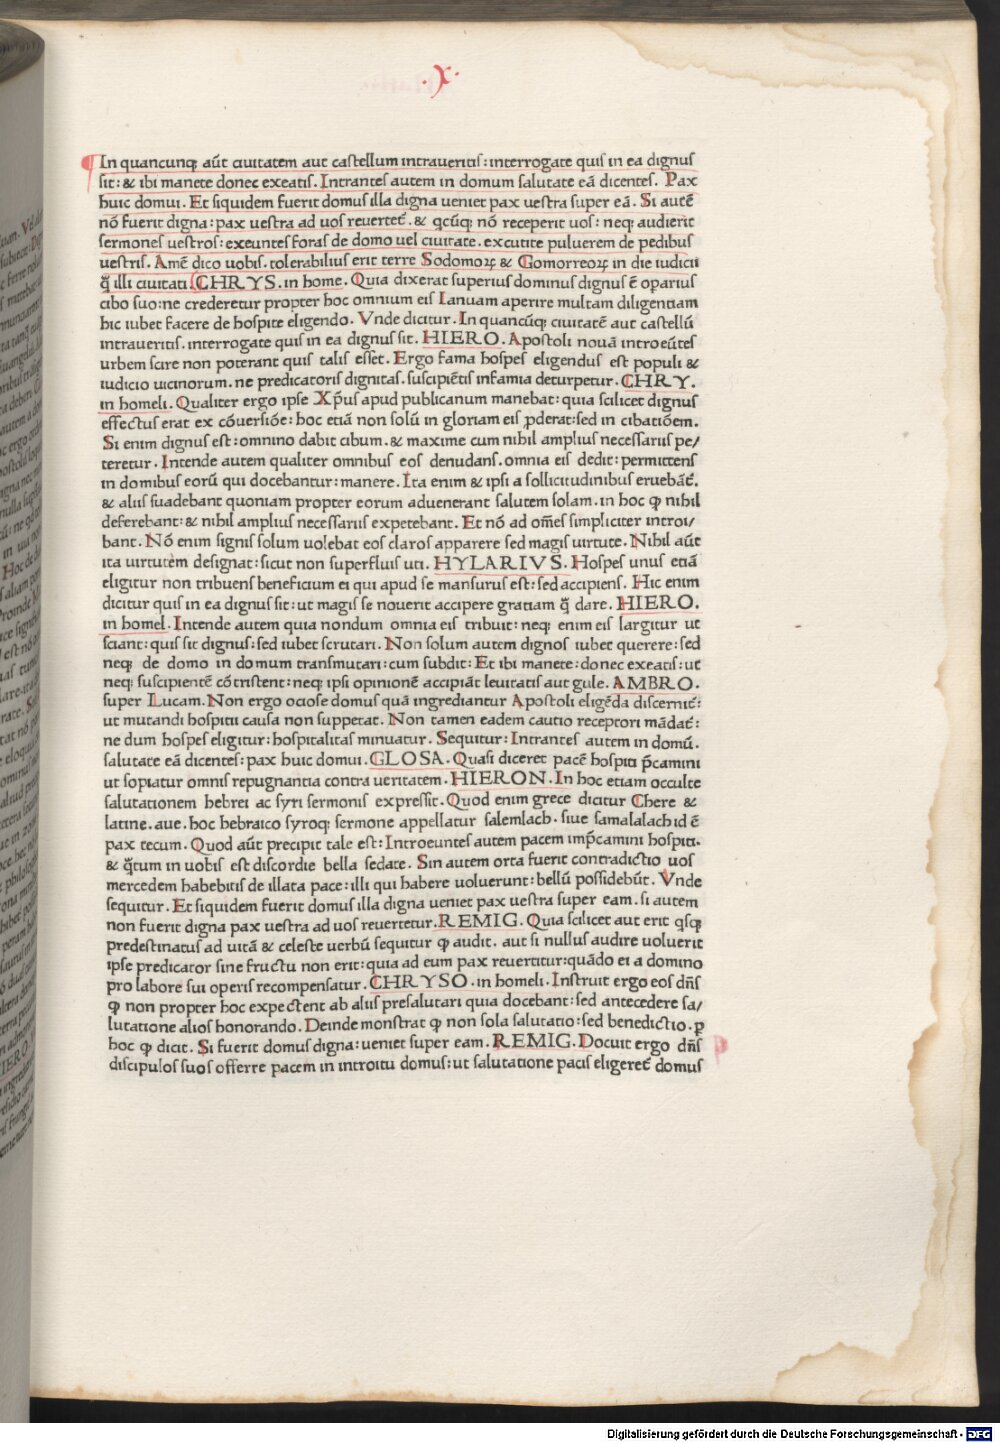 .X.
In quancunq; aūt ciuitatem aut castellum intraueritis: interrogate quis in ea dignus
sit: & ibi manete donec exeatis. Intrantes autem in domum salutate eā dicentes. Pax
huic domui. Et siquidem fuerit domus illa digna ueniet pax uestra super eā. Si autē
nō fuerit digna: pax uestra ad uos reuertet̄. & qcūq; nō receperit uos: neq; audierit
sermones uestros: exeuntes foras de domo uel ciuitate. excutite puluerem de pedibus
uestris. Amē dico uobis. tolerabilius erit terre Sodomoꝝ & Gomorreoꝝ in die iudicii
q̄ illi ciuitati. CHRYS. in home. Quia dixerat superius dominus dignus ē oparius
cibo suo: ne crederetur propter hoc omnium eis Ianuam aperire multam diligentiam
hic iubet facere de hospite eligendo. Vnde dicitur. In quancūq; ciuitatē aut castellū
intraueritis. interrogate quis in ea dignus sit. HIERO. Apostoli nouā introeūtes
urbem scire non poterant quis talis esset. Ergo fama hospes eligendus est populi &
iudicio uicinorum. ne predicatoris dignitas. suscipiētis infamia deturpetur. CHRY.
in homeli. Qualiter ergo ipse Xp̄us apud publicanum manebat: quia scilicet dignus
effectus erat ex cōuersiōe: hoc etiā non solū in gloriam eis ꝓderat: sed in cibatiōem.
Si enim dignus est: omnino dabit cibum. & maxime cum nihil amplius necessarius pe/
teretur. Intende autem qualiter omnibus eos denudans. omnia eis dedit: permittens
in domibus eorū qui docebantur: manere. Ita enim & ipsi a sollicitudinibus eruebāt̄.
& aliis suadebant quoniam propter eorum aduenerant salutem solam. in hoc ꝙ nihil
deferebant: & nihil amplius necessariis expetebant. Et nō ad om̄es simpliciter introi/
bant. Nō enim signis solum uolebat eos claros apparere sed magis uirtute. Nihil aūt
ita uirtutem designat: sicut non superfluis uti. HYLARIVS. Hospes unus etiā
eligitur non tribuens beneficium ei qui apud se mansurus est: sed accipiens. Hic enim
dicitur quis in ea dignus sit: ut magis se nouerit accipere gratiam q̄ dare. HIERO.
in homel. Intende autem quia nondum omnia eis tribuit: neq; enim eis largitur ut
sciant: quis sit dignus: sed iubet scrutari. Non solum autem dignos iubet querere: sed
neq; de domo in domum transmutari: cum subdit: Et ibi manete: donec exeatis: ut
neq; suscipientē cōtristent: neq; ipsi opinionē accipiāt leuitatis aut gule. AMBRO.
super Lucam. Non ergo ociose domus quā ingrediantur Apostoli eligēda discernit̄:
ut mutandi hospitii causa non suppetat. Non tamen eadem cautio receptori mādat̄:
ne dum hospes eligitur: hospitalitas minuatur. Sequitur: Intrantes autem in domū.
salutate eā dicentes: pax huic domui. GLOSA. Quasi diceret pacē hospiti p̄camini
ut sopiatur omnis repugnantia contra ueritatem. HIERON. In hoc etiam occulte
salutationem hebrei ac syri sermonis expressit. Quod enim grece dicitur Chere &
latine. aue. hoc hebraico syroq; sermone appellatur salemlach. siue samalalach id ē
pax tecum. Quod aūt precipit tale est: Introeuntes autem pacem imp̄camini hospiti.
& q̄tum in uobis est discordie bella sedate. Sin autem orta fuerit contradictio uos
mercedem habebitis de illata pace: illi qui habere uoluerunt: bellū possidebūt. Vnde
sequitur. Et siquidem fuerit domus illa digna ueniet pax uestra super eam. si autem
non fuerit digna pax uestra ad uos reuertetur. REMIG. Quia scilicet aut erit qsq;
predestinatus ad uitā & celeste uerbū sequitur ꝙ audit. aut si nullus audire uoluerit
ipse predicator sine fructu non erit: quia ad eum pax reuertitur: quādo ei a domino
pro labore sui operis recompensatur. CHRYSO. in homeli. Instruit ergo eos dn̄s
ꝙ non propter hoc expectent ab aliis presalutari quia docebant: sed antecedere sa/
lutatione alios honorando. Deinde monstrat ꝙ non sola salutatio: sed benedictio. ꝑ
hoc ꝙ dicit. Si fuerit domus digna: ueniet super eam. REMIG. Docuit ergo dn̄s
discipulos suos offerre pacem in introitu domus: ut salutatione pacis eligeret̄ domus
Digitalisierung gefördert durch die Deutsche Forschungsgemeinschaft - DFG